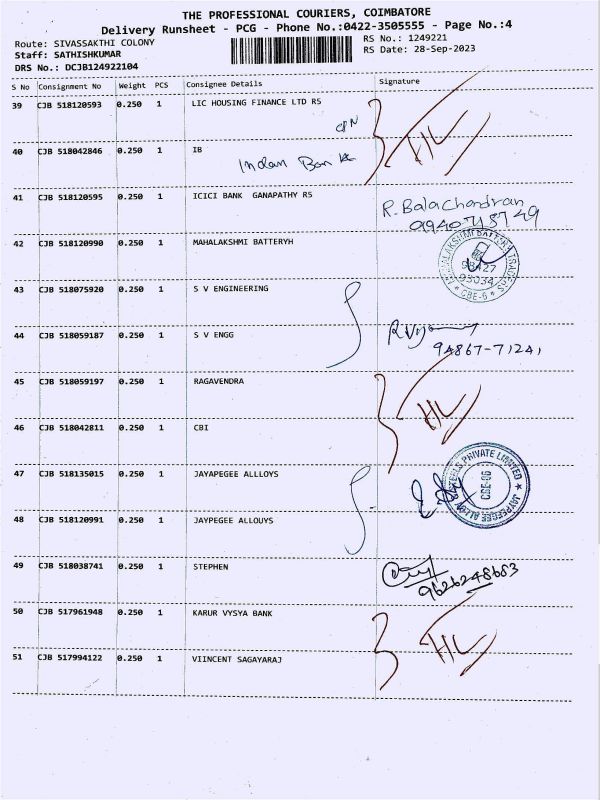 THE PROFESSIONAL COURIERS, COIMBATORE
Delivery Runsheet - PCG - Phone No.:0422-3505555 - Page No.:4
Route: SIVASSAKTHI COLONY
RS No.: 1249221
Staff: SATHISHKUMAR
RS Date: 28-Sep-2023
DRS No.: DCJB124922104
S No Consignment No Weight PCS Consignee Details Signature
39 CJB 518120593 0.250 1 LIC HOUSING FINANCE LTD R5
40 CJB 518042846 0.250 1 IB
Indian Bank
41 CJB 518120595 0.250 1 ICICI BANK GANAPATHY R5
R. Balachandran
9940718749
42 CJB 518120990 0.250 1 MAHALAKSHMI BATTERYH
MAHALAKSHMI BATTERY TRADERS
98427
95034
* CBE-6 *
43 CJB 518075920 0.250 1 S V ENGINEERING
44 CJB 518059187 0.250 1 S V ENGG
94867-71241
45 CJB 518059197 0.250 1 RAGAVENDRA
46 CJB 518042811 0.250 1 CBI
47 CJB 518135015 0.250 1 JAYAPEGEE ALLLOYS
JAYPEGEE ALLOY STEELS PRIVATE LIMITED
CBE-06
48 CJB 518120991 0.250 1 JAYPEGEE ALLOUYS
49 CJB 518038741 0.250 1 STEPHEN
9626248683
50 CJB 517961948 0.250 1 KARUR VYSYA BANK
51 CJB 517994122 0.250 1 VIINCENT SAGAYARAJ